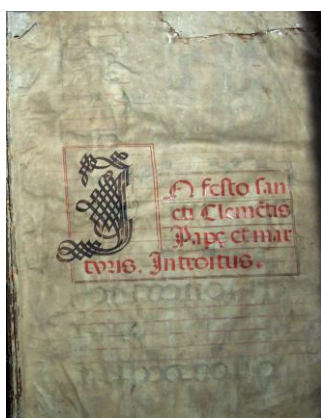 IN festo san
cti Clemẽtis
Papę et mar
tyris. Introitus.